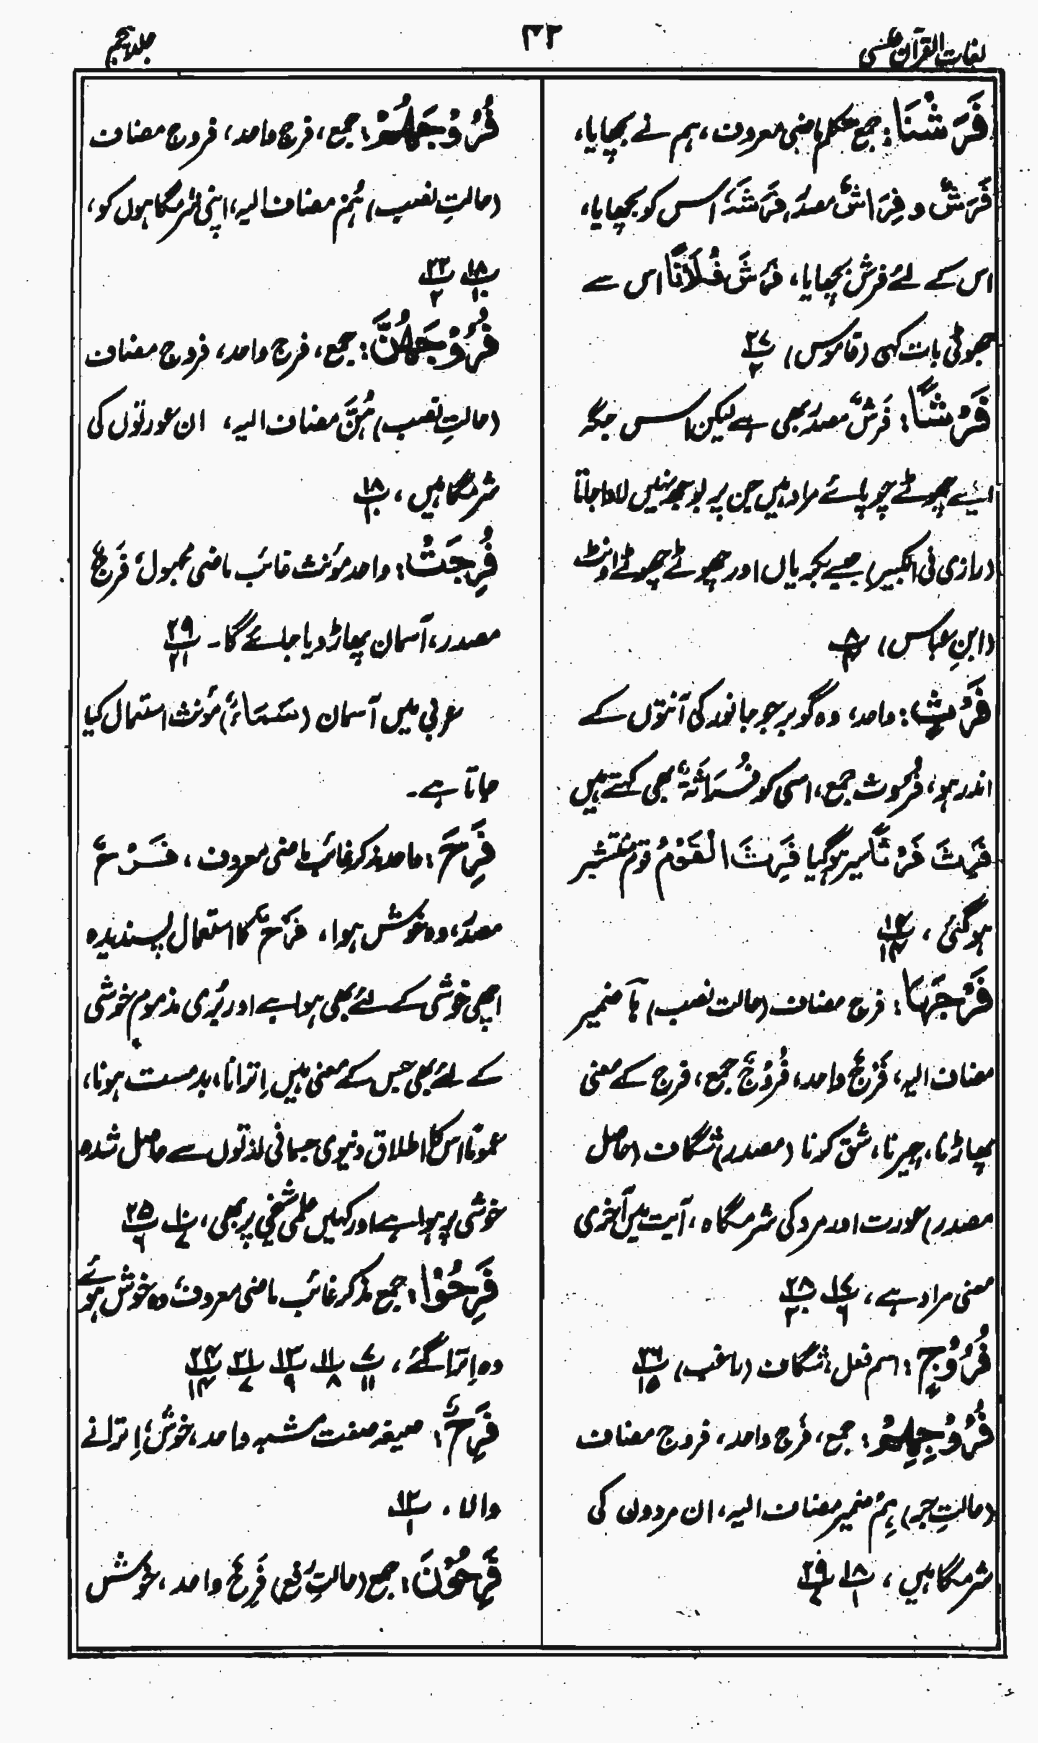 لغات القرآن عکسی
۳۲
جلد پنجم
فَرَشْنَا: جمع متکلم ماضی معروف، ہم نے بچھایا،
فَرْشٌ و فِرَاشٌ مصدر، فَرَشَہٗ اس کو بچھایا،
اس کے لئے فرش بچھایا، فَرَشَ فُلَانًا اس سے
جھوٹی بات کہی (قاموس) ۲۷/۲
فَرْشًا: فَرْشٌ مصدر بھی ہے لیکن اس جگہ
ایسے چھوٹے چوپائے مراد ہیں جن پر بوجھ نہیں لادا جاتا
(رازی فی الکبیر) جیسے بکریاں اور چھوٹے چھوٹے اونٹ
(ابنِ عباس) ۸/۴
فَرْثٍ: واحد، وہ گوبر جو جانور کی آنتوں کے
اندر ہو، فُرُوث جمع، اسی کو فُرَاثَۃٌ بھی کہتے ہیں
فَرِثَ فَرْثًا سیر ہوگیا فَرِثَ الْقَوْمُ قوم منتشر
ہوگئی، ۱۴/۱۴
فَرْجَهَا: فرج مضاف (حالت نصب) ہَا ضمیر
مضاف الیہ، فَرْجٌ واحد، فُرُوْجٌ جمع، فرج کے معنی
پھاڑنا، چیرنا، شق کرنا (مصدر) شگاف (حاصل
مصدر) عورت اور مرد کی شرمگاہ، آیت میں آخری
معنی مراد ہے، ۱۷/۶ ۲۸/۲۰
فُرُوْجٍ: اسم فعل، شگاف (راغب) ۲۶/۱۵
فُرُوْجِهِمْ: جمع، فَرْج واحد، فروج مضاف
(حالتِ جر) ہِمْ ضمیر مضاف الیہ، ان مردوں کی
شرمگاہیں، ۱۸/۱ ۲۹/۷
فُرُوْجَهُمْ: جمع، فرج واحد، فروج مضاف
(حالتِ نصب) ہُمْ مضاف الیہ، اپنی شرمگاہوں کو،
۱۸/۱۰ ۲۲/۲
فُرُوْجَهُنَّ: جمع، فرج واحد، فروج مضاف
(حالتِ نصب) ہُنَّ مضاف الیہ، ان عورتوں کی
شرمگاہیں، ۱۸/۱۰
فُرِجَتْ: واحد مؤنث غائب ماضی مجہول، فَرْجٌ
مصدر، آسمان پھاڑ دیا جائے گا۔ ۲۹/۲۱
عربی میں آسمان (سَمَاءٌ) مؤنث استعمال کیا
جاتا ہے۔
فَرِحَ: واحد مذکر غائب ماضی معروف، فَرَحٌ
مصدر، وہ خوش ہوا، فَرَحٌ کا استعمال پسندیدہ
اچھی خوشی کے لئے بھی ہوا ہے اور بُری مذموم خوشی
کے لئے بھی جس کے معنی ہیں اِترانا، بدمست ہونا،
عمومًا اس کا اطلاق دنیوی جسمانی لذتوں سے حاصل شدہ
خوشی پر ہوا ہے اور کہیں علمی شیخی پر بھی، ۱۰/۱۷ ۲۵/۶
فَرِحُوْا: جمع مذکر غائب ماضی معروف، وہ خوش ہوئے
وہ اِترا گئے، ۷/۱۱ ۱۱/۸ ۱۳/۹ ۲۱/۷ ۲۴/۱۴
فَرِحٌ: صیغہ صفت مشبہ واحد، خوش، اِترانے
والا، ۱۲/۱
فَرِحُوْنَ: جمع (حالتِ رفع) فَرِحٌ واحد، خوش